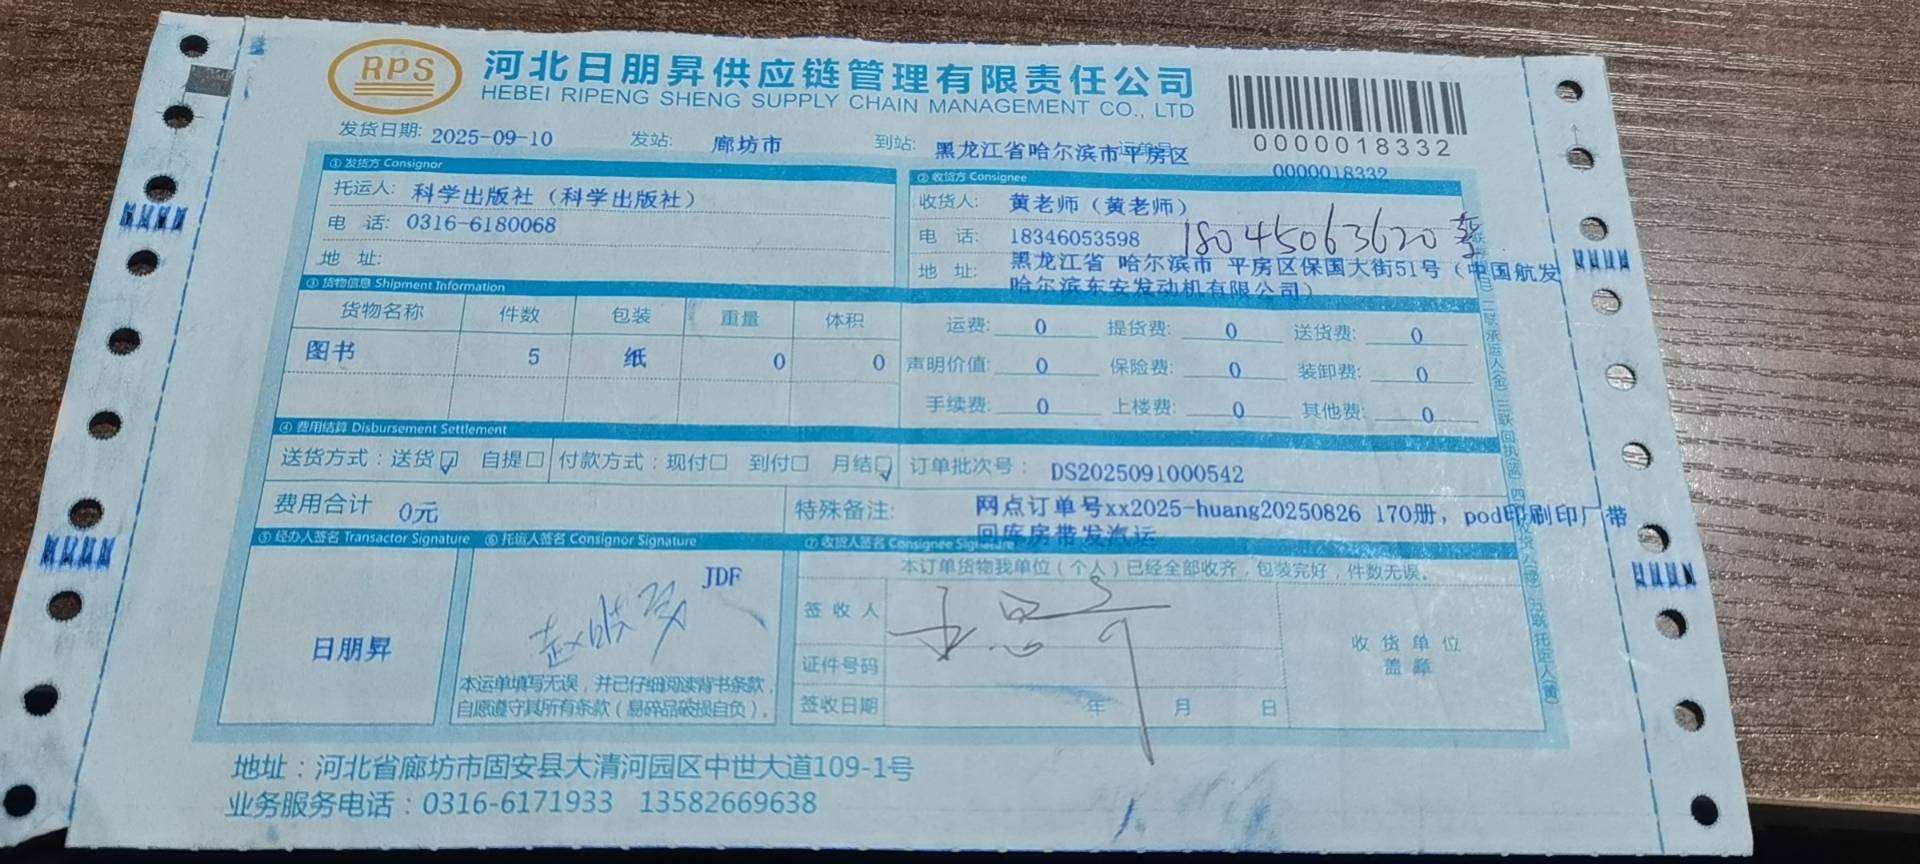 RPS 河北日朋昇供应链管理有限责任公司
HEBEI RIPENG SHENG SUPPLY CHAIN MANAGEMENT CO., LTD
0000018332
发货日期: 2025-09-10 发站: 廊坊市 到站: 黑龙江省哈尔滨市平房区 运单号
0000018332
① 发货方 Consignor ② 收货方 Consignee
托运人: 科学出版社（科学出版社） 收货人: 黄老师（黄老师）
电 话: 0316-6180068 电 话: 18346053598 18045063620
地 址: 地 址: 黑龙江省 哈尔滨市 平房区保国大街51号（中国航发
哈尔滨东安发动机有限公司）
③ 货物信息 Shipment Information
货物名称 件数 包装 重量 体积 运费: 0 提货费: 0 送货费: 0
图书 5 纸 0 0 声明价值: 0 保险费: 0 装卸费: 0
手续费: 0 上楼费: 0 其他费: 0
④ 费用结算 Disbursement Settlement
送货方式：送货☑ 自提□ 付款方式：现付□ 到付□ 月结☑ 订单批次号： DS2025091000542
费用合计 0元 特殊备注: 网点订单号xx2025-huang20250826 170册，pod印刷印厂带
回库房带发汽运
⑤ 经办人签名 Transactor Signature ⑥ 托运人签名 Consignor Signature ⑦ 收货人签名 Consignee Signature
本订单货物我单位（个人）已经全部收齐，包装完好，件数无误。
JDF
签 收 人
日朋昇
收 货 单 位
盖 章
证件号码
本运单填写无误，并已仔细阅读背书条款，
自愿遵守其所有条款（易碎品破损自负）。
签收日期 年 月 日
地址：河北省廊坊市固安县大清河园区中世大道109-1号
业务服务电话：0316-6171933 13582669638